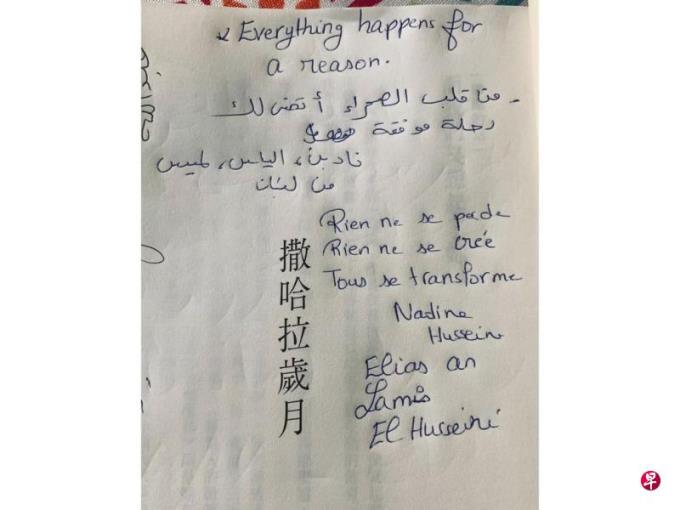 Everything happens for
a reason.
- من قلب الصحراء أتمنى لك
رحلة موفقة
نادين، الياس، لميس
من لبنان
Rien ne se perde
Rien ne se crée
Tous se transforme
Nadine
Hussein
Elias an
Lamis
El Husseini
撒哈拉歲月
早